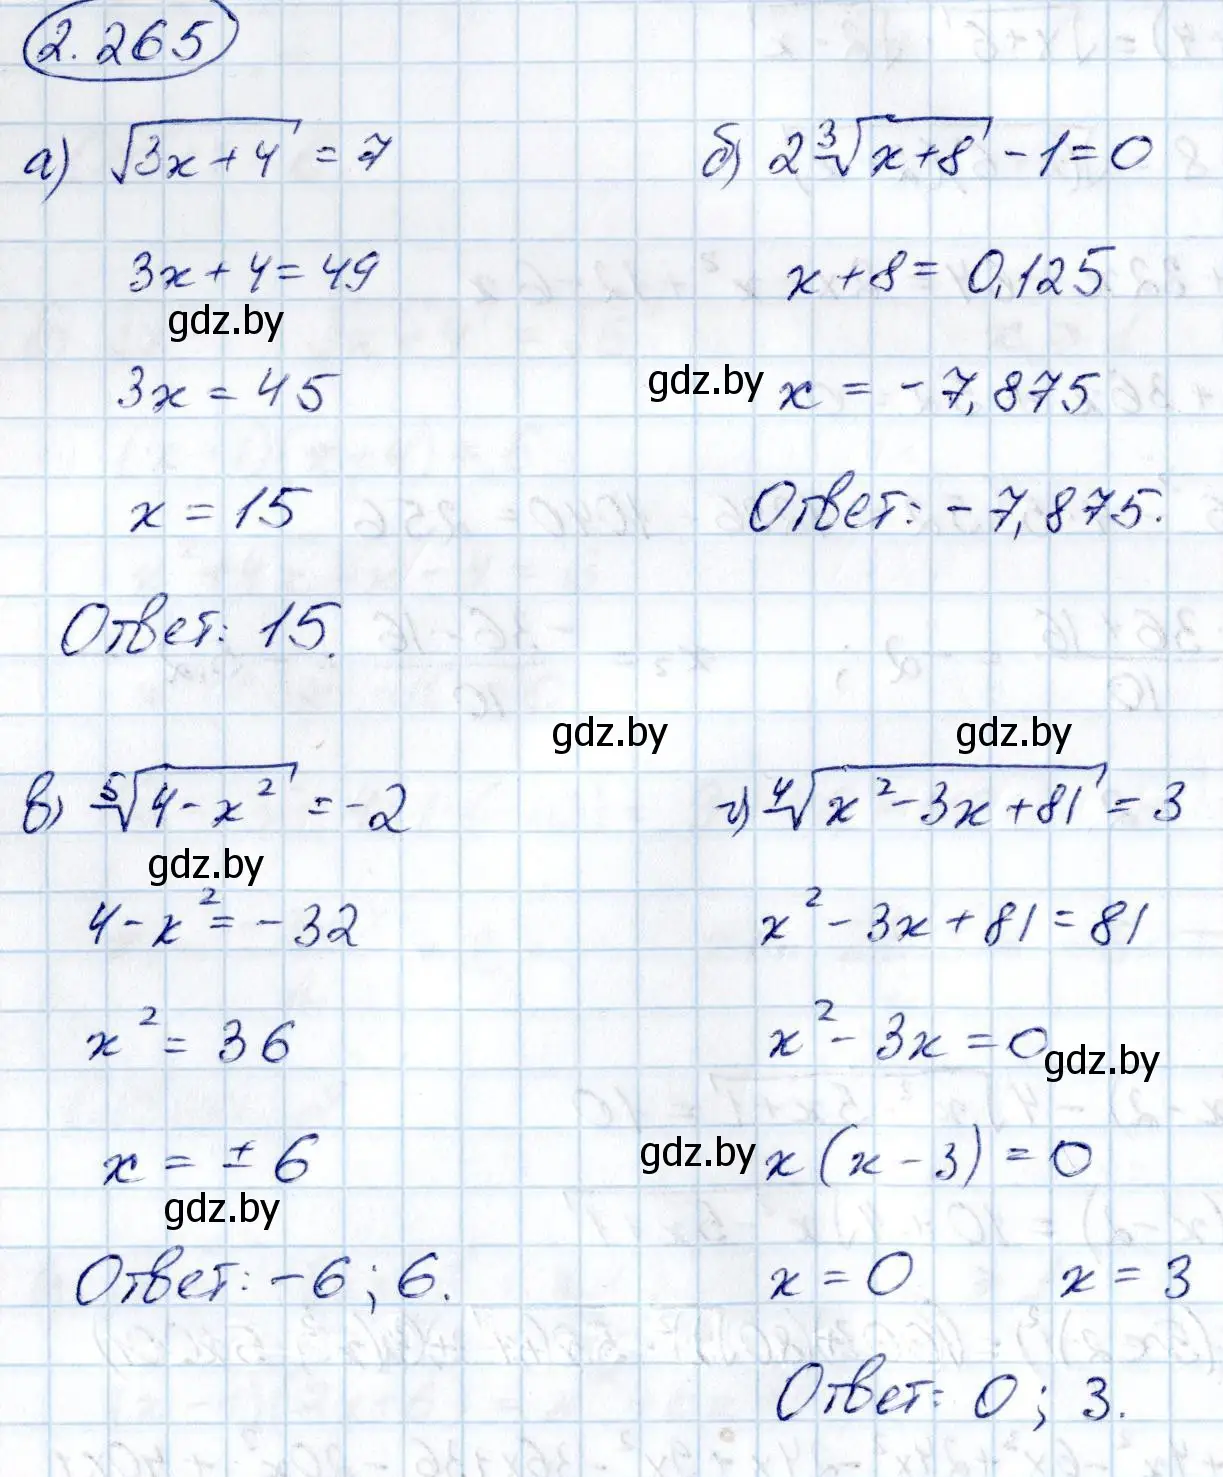 2.265
а) √(3x+4) = 7
3x+4=49
gdz.by
3x = 45
x = 15
Ответ: 15.
б) 2∛(x+8) - 1 = 0
x+8 = 0,125
gdz.by
x = -7,875
Ответ: -7,875.
gdz.by
gdz.by
в) ⁵√(4-x²) = -2
gdz.by
4-x² = -32
x² = 36
x = ±6
gdz.by
Ответ: -6; 6.
г) ⁴√(x²-3x+81) = 3
x² - 3x + 81 = 81
x² - 3x = 0
gdz.by
gdz.by
x(x-3) = 0
x = 0 x = 3
Ответ: 0; 3.